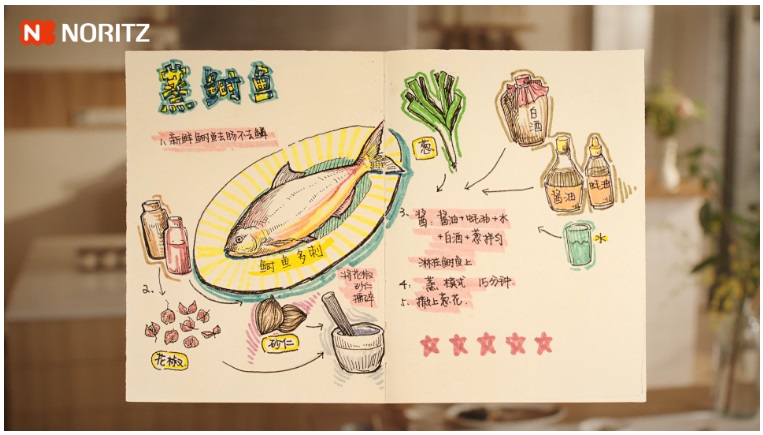 NORITZ
蒸鲥鱼
1、新鲜鲥鱼去肠不去鳞
鲥鱼多刺
2、
花椒
将花椒
砂仁
捣碎
砂仁
葱
白酒
酱油
蚝油
水
3、酱:酱油+蚝油+水
+白酒+葱拌匀
淋在鲥鱼上
4、蒸 模式 15分钟
5、撒上葱花.